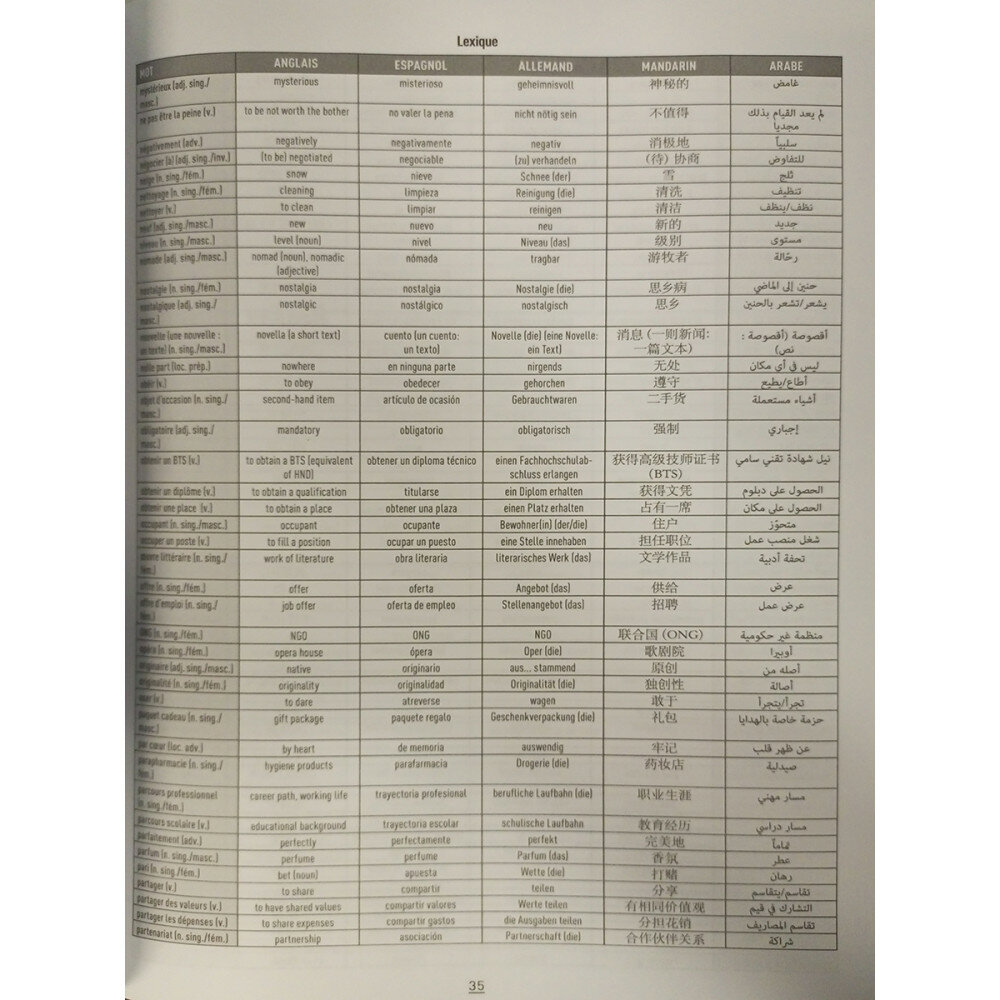 Lexique
MOT ANGLAIS ESPAGNOL ALLEMAND MANDARIN ARABE
mystérieux (adj. sing./ masc.) mysterious misterioso geheimnisvoll 神秘的 غامض
ne pas être la peine (v.) to be not worth the bother no valer la pena nicht nötig sein 不值得 لم يعد القيام بذلك مجديا
négativement (adv.) negatively negativamente negativ 消极地 سلبياً
négocier (à) (adj. sing./inv.) (to be) negotiated negociable (zu) verhandeln (待) 协商 للتفاوض
neige (n. sing./fém.) snow nieve Schnee (der) 雪 ثلج
nettoyage (n. sing./fém.) cleaning limpieza Reinigung (die) 清洗 تنظيف
nettoyer (v.) to clean limpiar reinigen 清洁 نظف/ينظف
neuf (adj. sing./masc.) new nuevo neu 新的 جديد
niveau (n. sing./masc.) level (noun) nivel Niveau (das) 级别 مستوى
nomade (adj. sing./masc.) nomad (noun), nomadic (adjective) nómada tragbar 游牧者 رحّالة
nostalgie (n. sing./fém.) nostalgia nostalgia Nostalgie (die) 思乡病 حنين إلى الماضي
nostalgique (adj. sing./ masc.) nostalgic nostálgico nostalgisch 思乡 يشعر/تشعر بالحنين
nouvelle (une nouvelle : un texte) (n. sing./masc.) novella (a short text) cuento (un cuento: un texto) Novelle (die) (eine Novelle: ein Text) 消息 (一则新闻: 一篇文本) أقصوصة (أقصوصة : نص)
nulle part (loc. prép.) nowhere en ninguna parte nirgends 无处 ليس في أي مكان
obéir (v.) to obey obedecer gehorchen 遵守 أطاع/يطيع
objet d'occasion (n. sing./ masc.) second-hand item artículo de ocasión Gebrauchtwaren 二手货 أشياء مستعملة
obligatoire (adj. sing./ masc.) mandatory obligatorio obligatorisch 强制 إجباري
obtenir un BTS (v.) to obtain a BTS (equivalent of HND) obtener un diploma técnico einen Fachhochschulab-schluss erlangen 获得高级技师证书 (BTS) نيل شهادة تقني سامي
obtenir un diplôme (v.) to obtain a qualification titularse ein Diplom erhalten 获得文凭 الحصول على دبلوم
obtenir une place (v.) to obtain a place obtener una plaza einen Platz erhalten 占有一席 الحصول على مكان
occupant (n. sing./masc.) occupant ocupante Bewohner(in) (der/die) 住户 متحوّز
occuper un poste (v.) to fill a position ocupar un puesto eine Stelle innehaben 担任职位 شغل منصب عمل
œuvre littéraire (n. sing./ fém.) work of literature obra literaria literarisches Werk (das) 文学作品 تحفة أدبية
offre (n. sing./fém.) offer oferta Angebot (das) 供给 عرض
offre d'emploi (n. sing./ fém.) job offer oferta de empleo Stellenangebot (das) 招聘 عرض عمل
ONG (n. sing./fém.) NGO ONG NGO 联合国 (ONG) منظمة غير حكومية
opéra (n. sing./fém.) opera house ópera Oper (die) 歌剧院 أوبيرا
originaire (adj. sing./masc.) native originario aus... stammend 原创 أصله من
originalité (n. sing./fém.) originality originalidad Originalität (die) 独创性 أصالة
oser (v.) to dare atreverse wagen 敢于 تجرأ/يتجرأ
paquet cadeau (n. sing./ masc.) gift package paquete regalo Geschenkverpackung (die) 礼包 حزمة خاصة بالهدايا
par cœur (loc. adv.) by heart de memoria auswendig 牢记 عن ظهر قلب
parapharmacie (n. sing./ fém.) hygiene products parafarmacia Drogerie (die) 药妆店 صيدلية
parcours professionnel (n. sing./fém.) career path, working life trayectoria profesional berufliche Laufbahn (die) 职业生涯 مسار مهني
parcours scolaire (v.) educational background trayectoria escolar schulische Laufbahn 教育经历 مسار دراسي
parfaitement (adv.) perfectly perfectamente perfekt 完美地 تماماً
parfum (n. sing./masc.) perfume perfume Parfum (das) 香氛 عطر
pari (n. sing./fém.) bet (noun) apuesta Wette (die) 打赌 رهان
partager (v.) to share compartir teilen 分享 تقاسم/يتقاسم
partager des valeurs (v.) to have shared values compartir valores Werte teilen 有相同价值观 التشارك في قيم
partager les dépenses (v.) to share expenses compartir gastos die Ausgaben teilen 分担花销 تقاسم المصاريف
partenariat (n. sing./fém.) partnership asociación Partnerschaft (die) 合作伙伴关系 شراكة
35